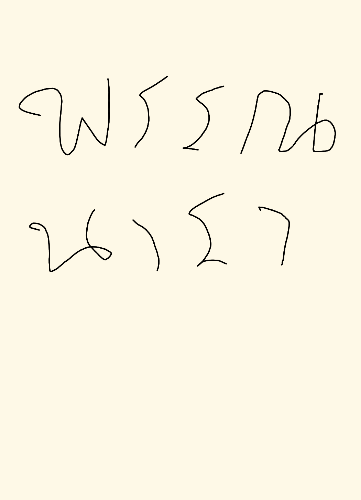 พรรณ
นารา